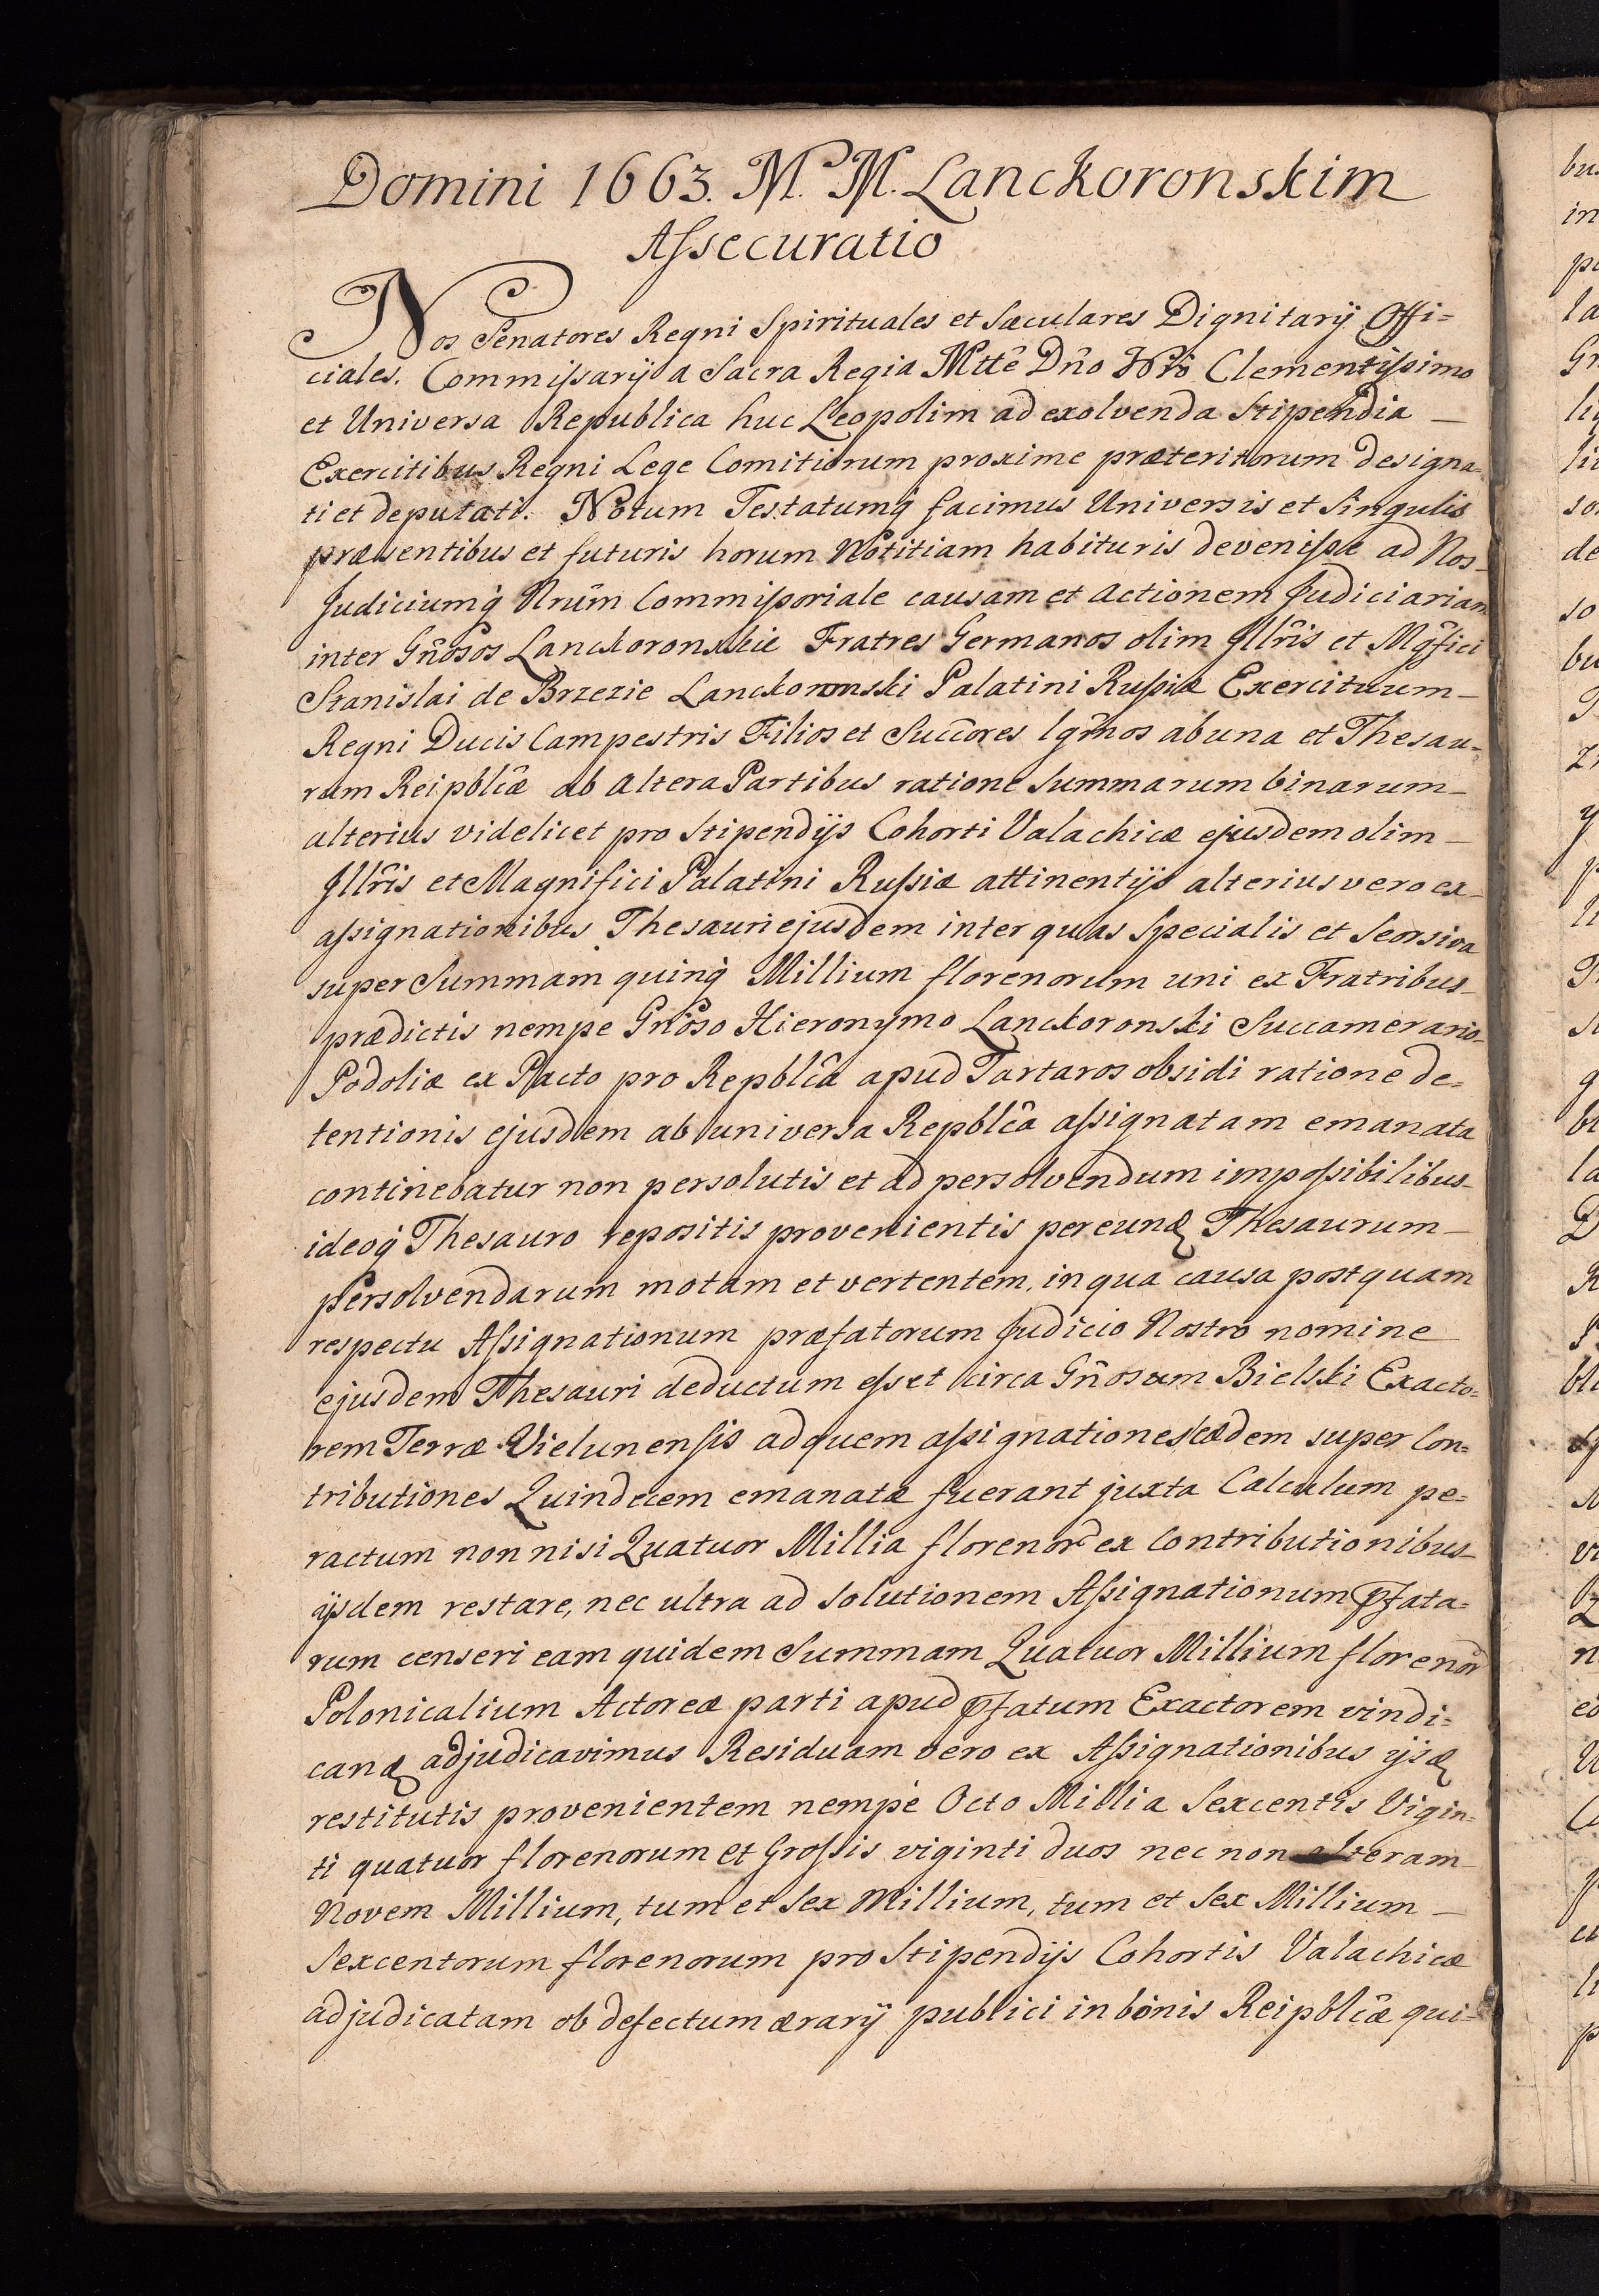 Domini 1663. M. M. Lanckoronskim
Aſsecuratio
Nos Senatores Regni Spirituales et Sæculares Dignitarÿ Offi=
ciales. Commiſsarÿ a Sacra Regia Mttê Dn̂o Nrô Clementiſsimo
et Universa Republica huc Leopolim ad exolvenda Stipendia —
Exercitibus Regni Lege Comitiorum proxime præteritorum designa=
ti et deputati. Notum Testatumq̀ facimus Universis et Singulis
præsentibus et futuris horum Notitiam habituris deveniſse ad Nos—
Judiciumq̀ Nrûm Commiſsoriale causam et actionem Judiciariam
inter Gn̂osos Lanckoronskie Fratres Germanos olim Jllr̂is et Mgf̂ici
Stanislai de Brzezie Lanckoronski Palatini Ruſsiæ Exercituum—
Regni Ducis Campestris Filios et Sucĉores lgm̂os ab una et Thesau=
rum Reipblĉæ ab altera Partibus ratione Summarum binarum—
alterius videlicet pro Stipendÿs Cohorti Valachicæ ejusdem olim—
Jllr̂is et Magnifici Palatini Ruſsiæ attinentÿs alterius vero ex—
aſsignationibus Thesauri ejusdem inter quas Specialis et Seorsiva
super Summam quinq̀ Millium florenorum uni ex Fratribus—
prædictis nempe Gn̂oso Hieronymo Lanckoronski Succamerario—
Podoliæ ex Pacto pro Repblĉa apud Tartaros obsidi ratione de=
tentionis ejusdem ab universa Repblĉa aſsignatam emanata
continebatur non persolutis et ad persolvendum impoſsibilibus—
ideoq̀ Thesauro repositis provenientis per eunđ Thesaurum—
Persolvendarum motam et vertentem, in qua causa postquam
respectu Aſsignationum præfatorum Judicio Nostro nomine
ejusdem Thesauri deductum eſset circa Gn̂osum Bielski Exacto=
rem Terræ Vielunenſis ad quem aſsignationes eædem super Con=
tributiones Quindecem emanatæ fuerant juxta Calculum pe=
ractum non nisi Quatuor Millia florenor̂ ex Contributionibus—
ÿsdem restare, nec ultra ad solutionem Aſsignationum p̃fata=
rum censeri eam quidem Summam Quatuor Millium florenor̂
Polonicalium Actoreæ parti apud p̃fatum Exactorem vindi=
canđ adjudicavimus Residuam vero ex Aſsignationibus ÿsđ
restitutis provenientem nempè Octo Millia Sexcentis Vigin=
ti quatuor florenorum et Groſsis viginti duos nec non alteram—
Novem Millium, tum et Sex Millium, tum et Sex Millium —
Sexcentorum florenorum pro Stipendÿs Cohortis Valachicæ
adjudicatam ob defectum ærarÿ publici in bonis Reipblĉæ qui=